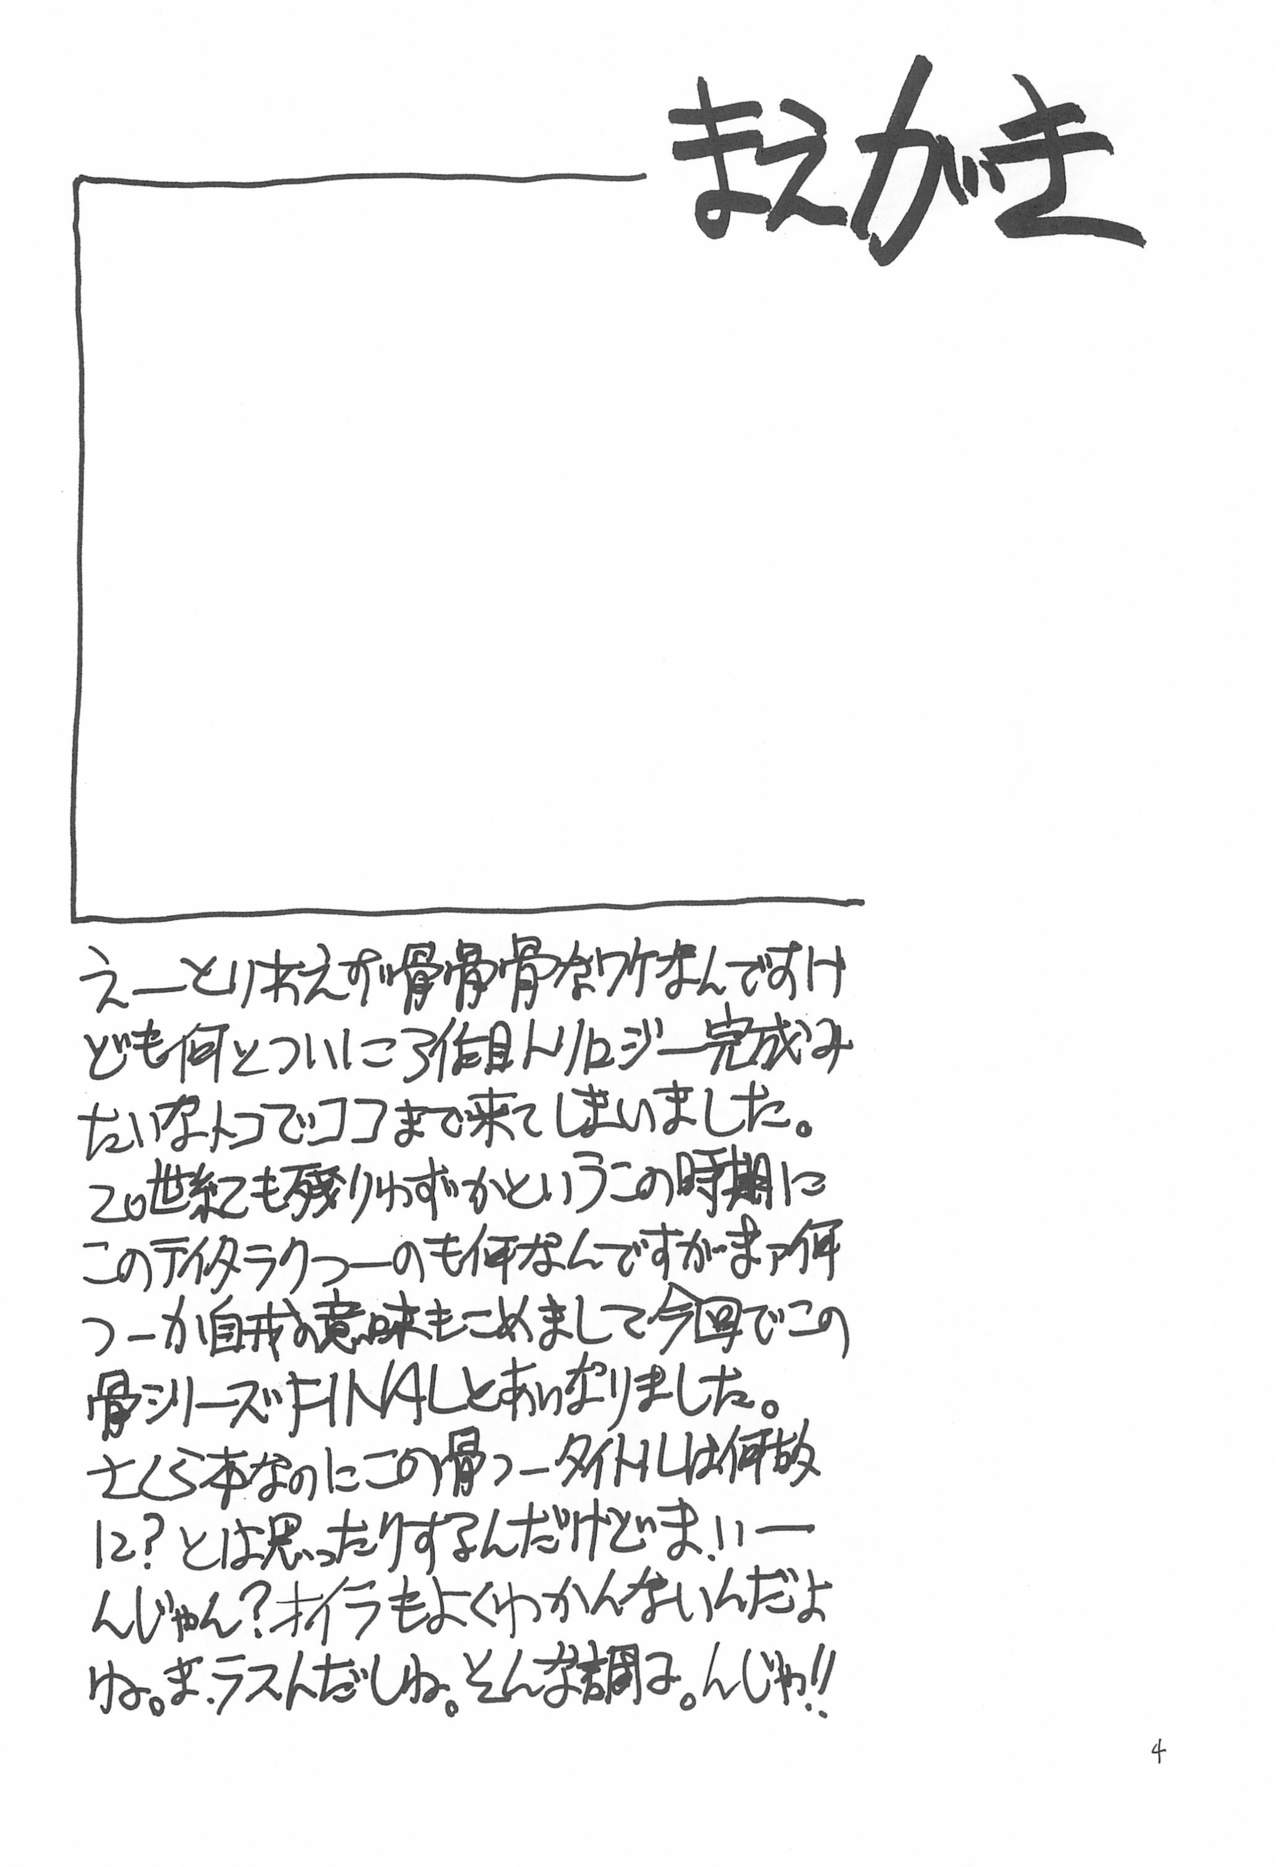 まえがき
えーとりあえず骨骨骨なワケなんですけ
ども何とついに3作目トリロジー完成み
たいなトコでココまで来てしまいました。
20世紀も残りわずかというこの時期に
このテイタラクつーのも何なんですがまァ何
つーか自戒の意味もこめまして今回でこの
骨シリーズFINALとあいなりました。
さくら本なのにこの骨つータイトルは何故
に?とは思ったりするんだけどま、いー
んじゃん?オイラもよくわかんないんだよ
ね。ま、ラスんだしね。そんな調子。んじゃ!!
4